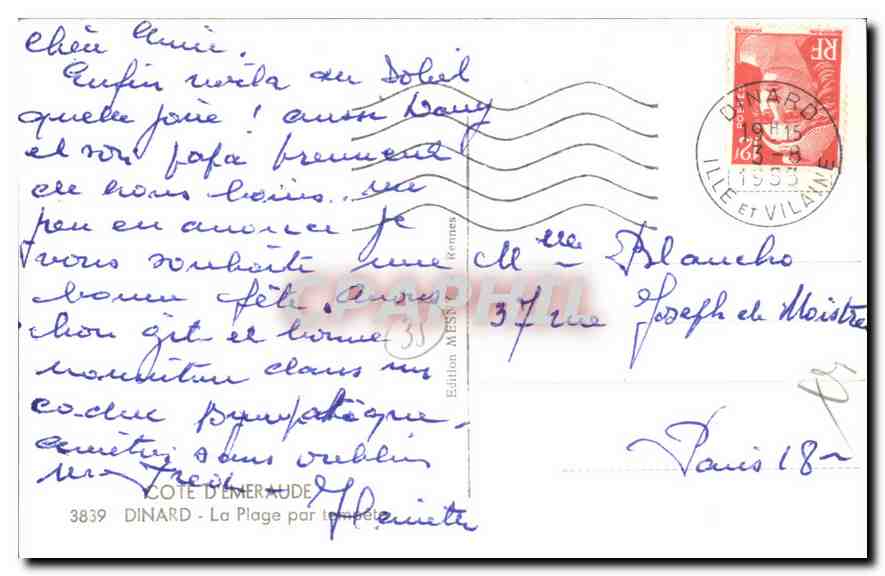 Chère Amie.
Enfin voila du Soleil
quelle joie ! aussi Dany
et son papa prennent
de bons bains. un
peu en avance je
vous souhaite une
bonne fête. Avons
bon gîte et bonne
nourriture dans un
cadre sympathique.
amitiés sans oublier
Mr Fred
COTE D'EMERAUDE
3839 DINARD - La Plage par tempête
Edition MESNY Rennes
35
RF
POSTES
12F
DINARD
19H15
3-8
1953
ILLE ET VILAINE
Mlle Blancho
37 rue Joseph de Maistre
Paris 18
CPAPHIL